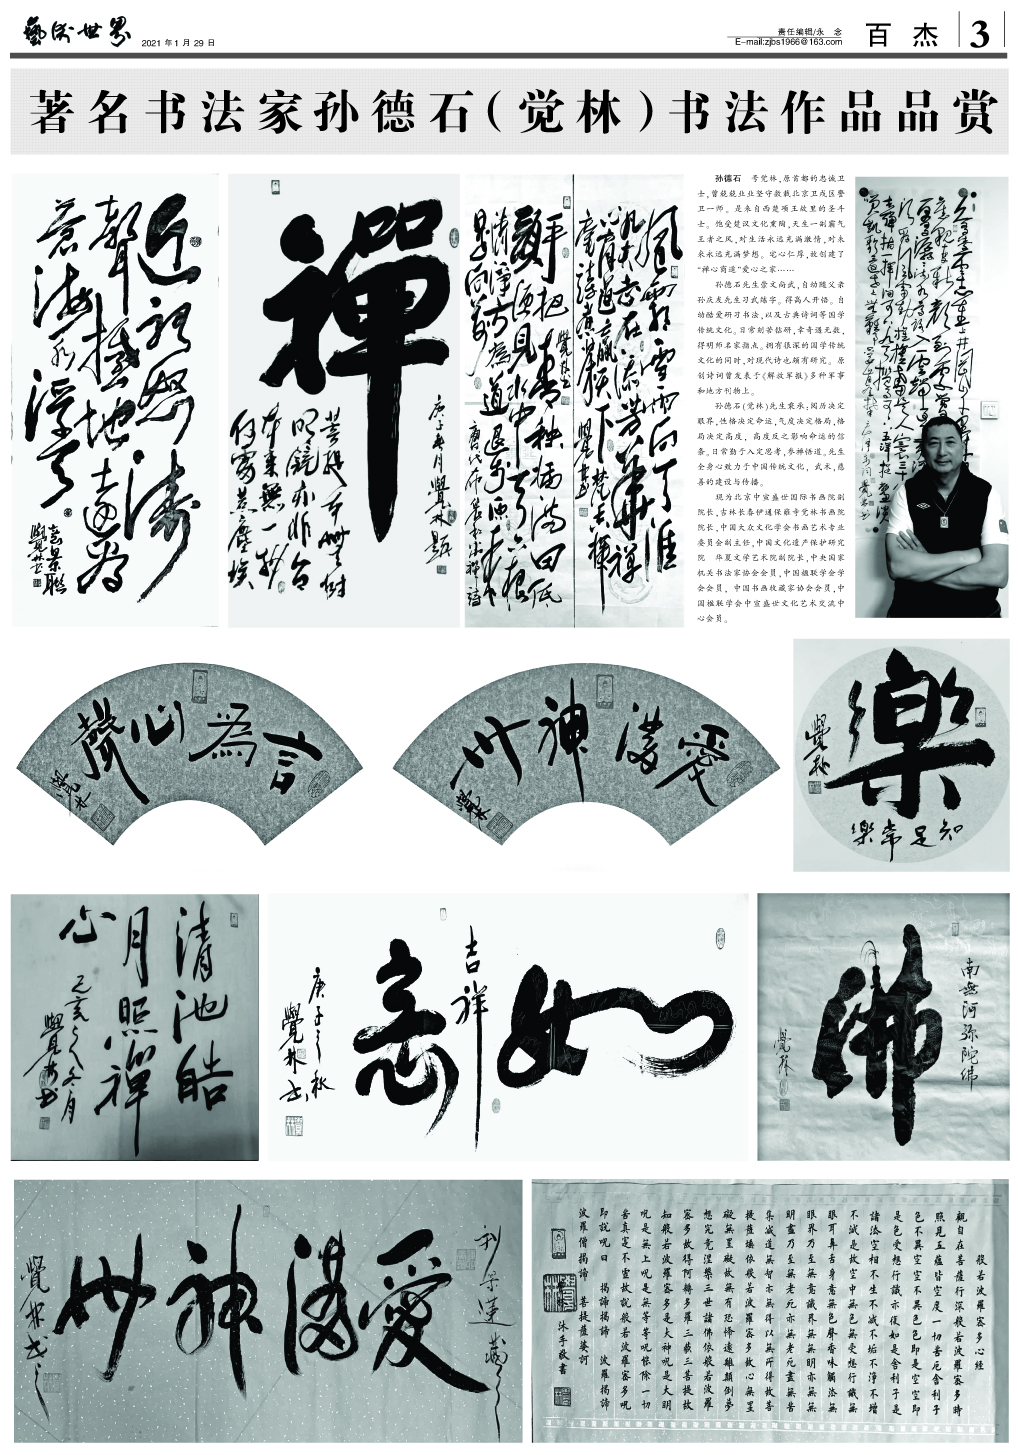 藝術世界
2021年1月29日
责任编辑/永 念
E-mail:zjbs1966@163.com
百 杰
3
著名书法家孙德石(觉林)书法作品品赏
近視怒濤
聲撼地遠為
蒼海不浮天
覺林書
禪
菩提本無樹
明鏡亦非台
本來無一物
何處惹塵埃
庚子年月覺林題
手把青秧插滿田低
頭便見水中天六根
清淨方為道退步原來
是向前
孙德石 号觉林,原首都的忠诚卫
士,曾兢兢业业坚守教戴北京卫戍区警
卫一师。是来自西楚项王故里的圣斗
士。饱受楚汉文化熏陶,天生一副霸气
王者之风,对生活永远充满激情,对未
来永远充满梦想。宅心仁厚,故创建了
“禅心商道”爱心之家……
孙德石先生崇文尚武,自幼随父亲
孙庆友先生习武练字。得高人开悟。自
幼酷爱研习书法,以及古典诗词等国学
传统文化。日常刻苦钻研,幸奇遇无数,
得明师名家指点。拥有很深的国学传统
文化的同时,对现代诗也颇有研究。原
创诗词曾发表于《解放军报》多种军事
和地方刊物上。
孙德石(觉林)先生秉承:阅历决定
眼界,性格决定命运,气度决定格局,格
局决定高度,高度反之影响命运的信
条。日常勤于入定思考,参禅悟道。先生
全身心致力于中国传统文化,武术,慈
善的建设与传播。
现为北京中宣盛世国际书画院副
院长,吉林长春护通保雅寺觉林书画院
院长,中国大众文化学会书画艺术专业
委员会副主任,中国文化遗产保护研究
院 华夏文学艺术院副院长,中央国家
机关书法家协会会员,中国楹联学会学
会会员,中国书画收藏家协会会员,中
国楹联学会中宣盛世文化艺术交流中
心会员。
言為心聲
覺林
愛滿神州
覺林
樂
知足常樂
覺林
清池皓
月照禪
心
己亥之冬月
覺林書
如
吉祥
意
庚子之秋
覺林書
佛
南無阿弥陀佛
覺林
愛滿神州
覺林書
般若波羅密多心經
觀自在菩薩行深般若波羅密多時
照見五蘊皆空度一切苦厄舍利子
色不異空空不異色色即是空空即
是色受想行識亦復如是舍利子是
諸法空相不生不滅不垢不淨不增
不減是故空中無色無受想行識無
眼耳鼻舌身意無色聲香味觸法無
眼界乃至無意識界無無明亦無無
明盡乃至無老死亦無老死盡無苦
集滅道無智亦無得以無所得故菩
提薩埵依般若波羅密多故心無罣
礙無罣礙故無有恐怖遠離顛倒夢
想究竟涅槃三世諸佛依般若波羅
密多故得阿耨多羅三藐三菩提故
知般若波羅密多是大神呪是大明
呪是無上呪是無等等呪能除一切
苦真實不虛故說般若波羅密多呪
即說呪曰 揭諦揭諦 波羅揭諦
波羅僧揭諦 菩提薩婆訶
沐手敬書